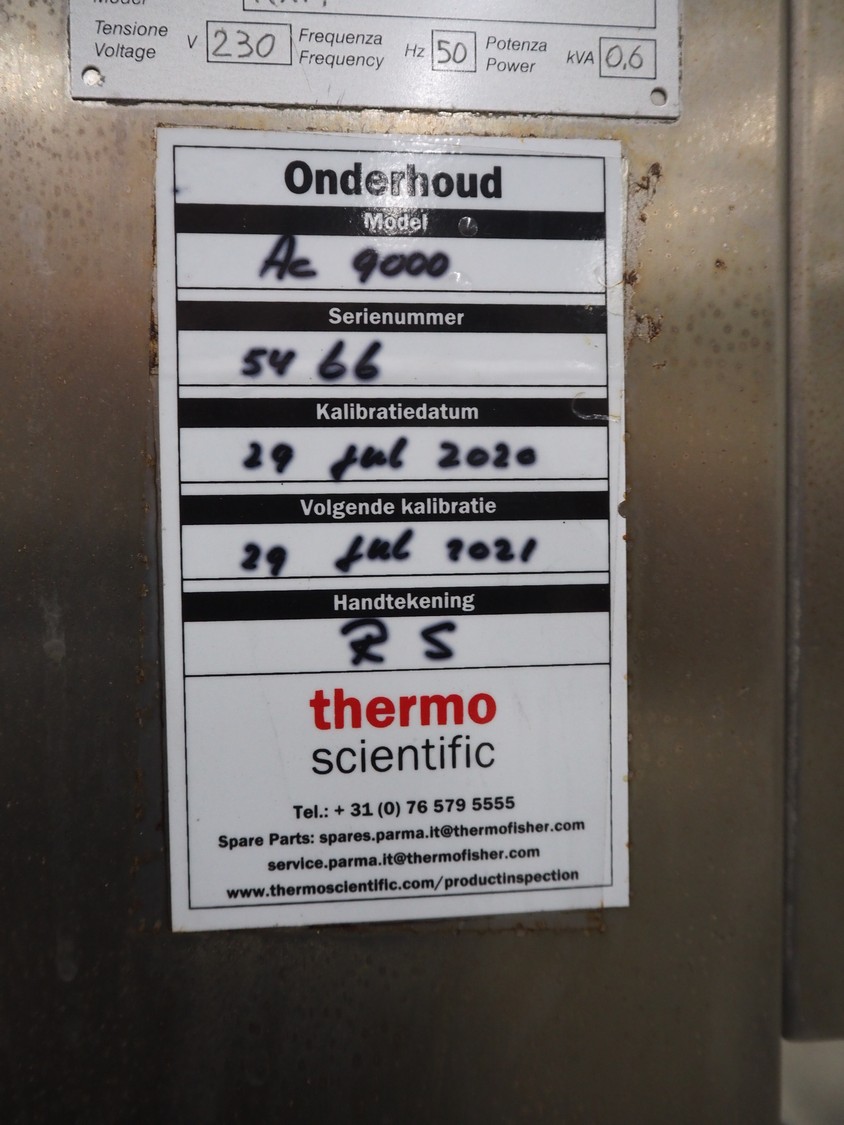 Tensione
Voltage
V 230
Frequenza
Frequency
Hz 50
Potenza
Power
kVA 0,6
Onderhoud
Model
Ac 9000
Serienummer
54 66
Kalibratiedatum
29 Jul 2020
Volgende kalibratie
29 Jul 2021
Handtekening
R S
thermo
scientific
Tel.: + 31 (0) 76 579 5555
Spare Parts: spares.parma.it@thermofisher.com
service.parma.it@thermofisher.com
www.thermoscientific.com/productinspection